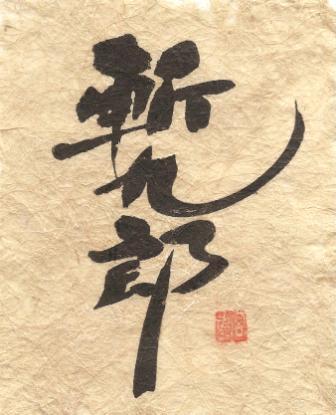 斬九郎